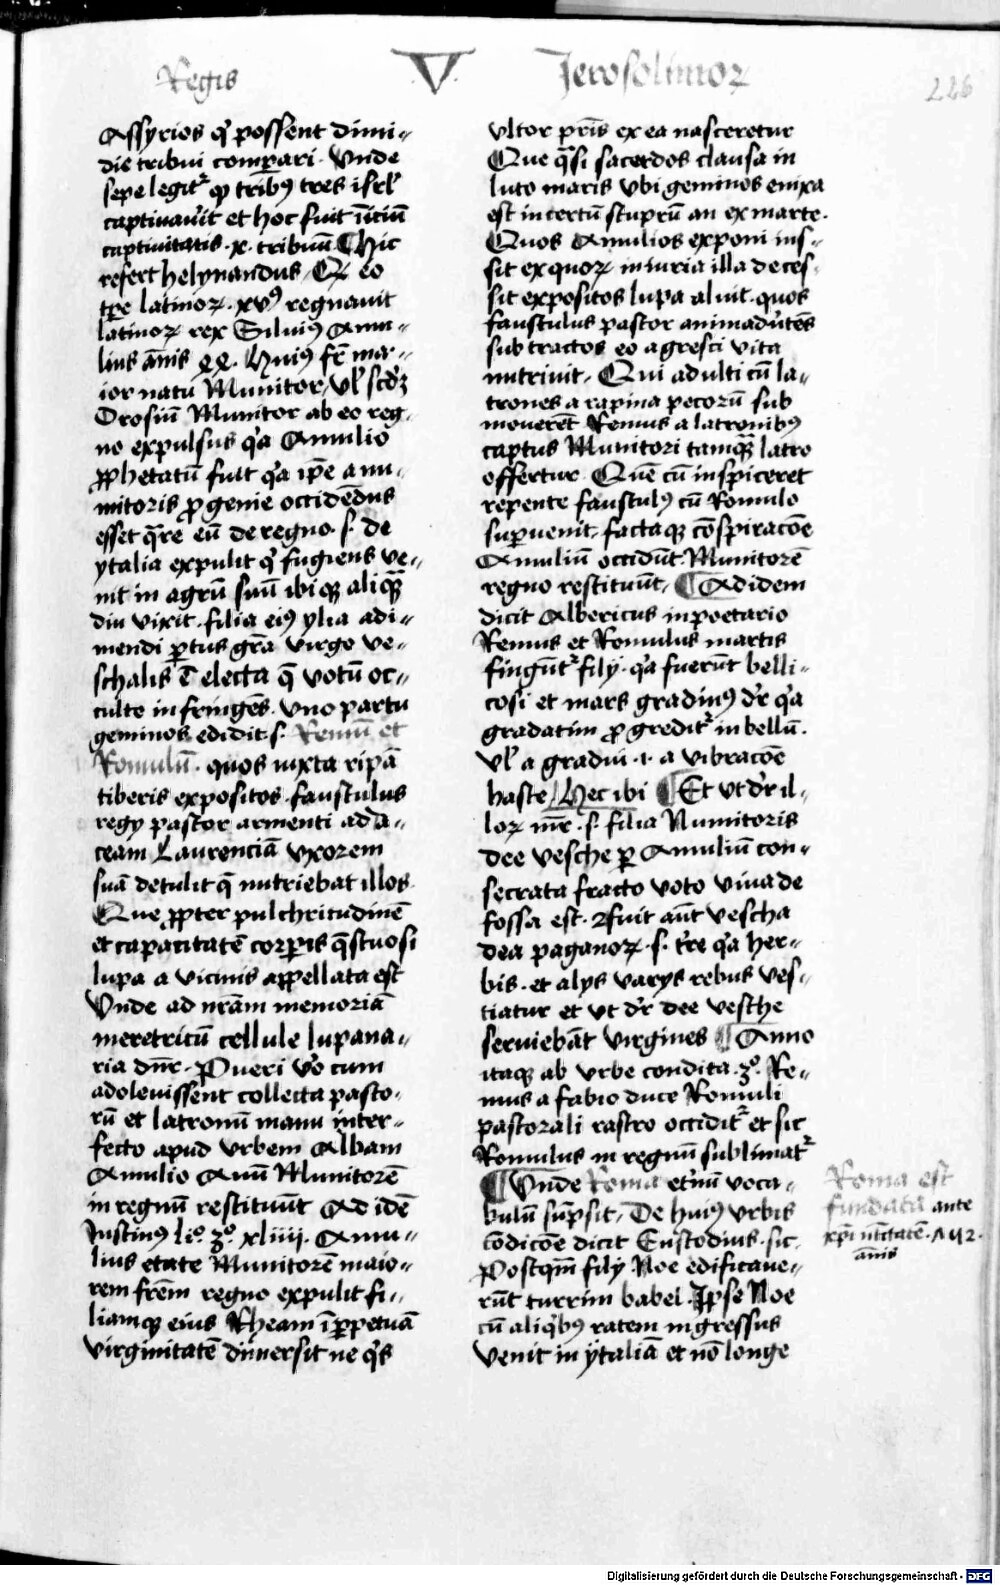 Regis V Jerosolimoꝝ
226
Assyrios qͥ possent dimi„
die tribui compͣari · Vnde
sepe legitʳ qꝫ tribꝰ tres isrl̕
captiuauit et hoc fuit īiciū
captiuitatis · x · tribuū ¶ hic
refert helynandus / Eꝝ eo
tp̄re latinoꝝ · xvꝰ regnauit
latinoꝝ rex Siluiꝰ Amu„
lius ānis · Huiꝰ fr̄ ma„
ior natu Munitor / vl̕ scd̄ꝫ
Orosiū Munitor ab eo reg„
no expulsus qͥa Amulio
ꝓphetatū fuit qͥa ip̄e a nu„
mitoris ꝓgenie occidēdus
esset qͣre eū de regno · s · de
ytalia expulit qͥ fugiens ve„
nit in agrū suū ibiqꝫ aliqͣ
diu vixit · filia eiꝰ ylia adi„
mendi ꝑtus grā virgo ve„
schalis ē electa q̄ votū oc„
culte infringēs · vno partu
geminos edidit · s · Remū et
Romulū · quos iuxta ripā
tiberis expositos · faustulus
regy pastor armenti ad a„
ceam Laurenciā vxorem
suā detulit q̄ nutriebat illos
Que ꝓpter pulchritudinē
et capacitatē corꝑis q̄stuosi
lupa a vicinis appellata est
Vnde ad nr̄am memoriā
meretricū cellule lupana„
ria dn̄r · Pueri v̕o cum
adoleuissent collecta pasto„
rū et latronū manu inter„
fecto apud vrbem Albam
Amulio Auū Munitorē
in regnū restituūt Ad idē
Justinꝰ li° 3° xliiij · Amu„
lius etate Munitorē maio„
rem frēm regno expulit fi„
liamqꝫ eius Rheam ī ꝑpetuā
virginitatē dimersit ne qͥs
vltor pr̄is ex ea nasceretur
Que qͣsi sacerdos clausa in
luto maris vbi geminos enixa
est incertū stuprū an ex marte ·
Quos Amulios exponi ius„
sit ex quoꝝ iniuria illa deces„
sit expositos lupa aluit · quos
faustulus pastor animadutēs
subtractos eo agresti vita
nutriuit · Qui adulti cū la„
trones a rapina pecorū sub
mouerēt Remus a latronibꝰ
captus Munitori tamqͣ latro
offertur · Quē cū inspiceret
repente faustulꝰ cū Romulo
suꝑuenit · factaqꝫ cōspiracōe
Amuliū occidūt · Munitorē
regno restituūt · ¶ Ad idem
dicit Albericus in poetario
Remus et Romulus martis
fingūtʳ fily · qͥa fuerūt belli„
cosi et mars gradiuꝰ dr̄ qͥa
gradatim ꝓgreditʳ in bellū ·
vl̕ a gradiui · i · a vibracōe
haste / Hec ibi ¶ Et vt dr̄ il„
loꝝ mr̄ · s · filia Numitoris
dee vesche ꝑ Amuliū con„
secrata fracto voto viua de
fossa est · fuit aūt vescha
dea paganoꝝ · s · tr̄e qͥa her„
bis · et alys varys rebus ves„
tiatur et vt dr̄ dee vesche
seruiebāt virgines ¶ Anno
itaqꝫ ab vrbe condita · 3° · Re„
mus a fabio duce Romuli
pastorali rastro occiditʳ et sic
Romulus in regnū sublimatʳ
¶ Vnde Roma voca„
bulū sūpsit · De huiꝰ vrbis
cōdicōe dicit Eustodius · sic ·
Postqͣm fily Noe edificaue„
rūt turrim babel · Ipse Noe
cū aliqͥbꝰ ratem ingressus
venit in ytaliā et nō longe
Roma est
fundata ante
annis
Digitalisierung gefördert durch die Deutsche Forschungsgemeinschaft - DFG